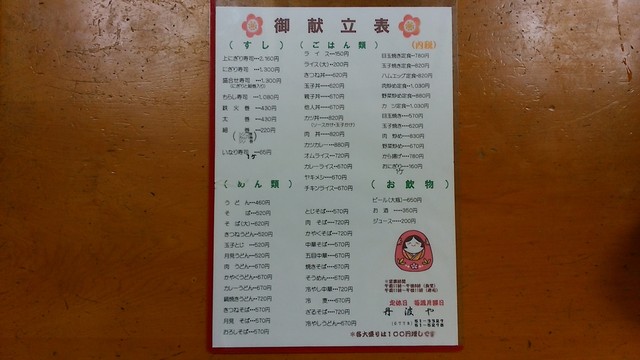 御献立表
(すし)
上にぎり寿司…2,160円
にぎり寿司…1,300円
盛合せ寿司…1,300円
(にぎりと細巻入り)
ちらし寿司…1,080円
鉄火巻…430円
太巻…430円
細巻…220円
いなり寿司…65円
1ケ
(ごはん類)
ライス…150円
ライス(大)…200円
きつね丼…620円
玉子丼…620円
親子丼…670円
他人丼…670円
カツ丼…820円
肉丼…820円
カツカレー…880円
オムライス…720円
カレーライス…670円
ヤキメシ…670円
チキンライス…670円
目玉焼き定食…780円
玉子焼き定食…820円
ハムエッグ定食…820円
肉炒め定食…1,030円
野菜炒め定食…880円
カツ定食…1,030円
目玉焼き…570円
玉子焼き…620円
肉炒め…830円
野菜炒め…670円
から揚げ…780円
おにぎり…160円
(めん類)
うどん…460円
そば…520円
そば(大)…620円
きつねうどん…520円
玉子とじ…520円
月見うどん…520円
肉うどん…670円
かやくうどん…670円
カレーうどん…670円
鍋焼きうどん…720円
きつねそば…570円
月見そば…570円
おろしそば…570円
とじそば…570円
肉そば…720円
かやくそば…670円
中華そば…570円
五目中華…670円
焼きそば…670円
そうめん…670円
冷やし中華…720円
冷麦…670円
ざるそば…720円
冷やしうどん…670円
(お飲物)
ビール(大瓶)…650円
お酒…350円
ジュース…200円
※営業時間
定休日 毎週月曜日
丹波や
※各大盛りは100円増し